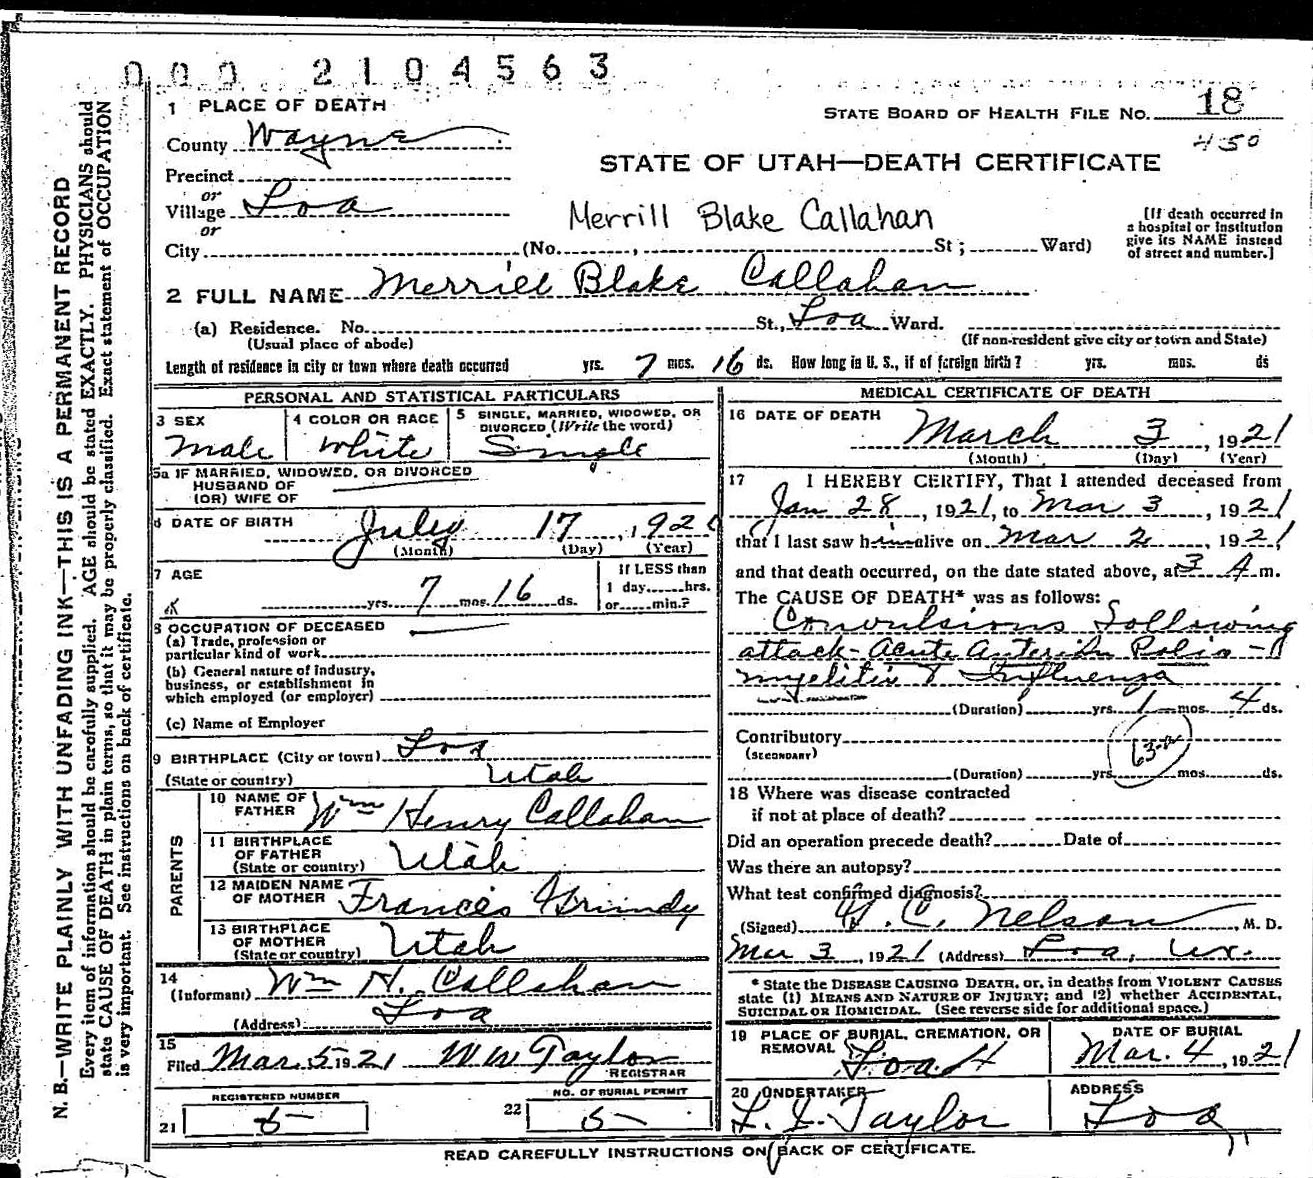 000 2104563
1 PLACE OF DEATH
STATE BOARD OF HEALTH FILE NO. 18
County Wayne
450
STATE OF UTAH—DEATH CERTIFICATE
Precinct
or
Village Loa
or
Merrill Blake Callahan
[If death occurred in a hospital or institution give its NAME instead of street and number.]
City (No. , St; Ward)
2 FULL NAME Merrill Blake Callahan
(a) Residence. No. St., Loa Ward.
(Usual place of abode) (If non-resident give city or town and State)
Length of residence in city or town where death occurred yrs. 7 mos. 16 ds. How long in U. S., if of foreign birth? yrs. mos. ds
PERSONAL AND STATISTICAL PARTICULARS
3 SEX 4 COLOR OR RACE 5 SINGLE, MARRIED, WIDOWED, OR DIVORCED (Write the word)
Male White Single
5a IF MARRIED, WIDOWED, OR DIVORCED
HUSBAND OF
(OR) WIFE OF
6 DATE OF BIRTH July 17, 1920
(Month) (Day) (Year)
7 AGE yrs. 7 mos. 16 ds.
If LESS than 1 day hrs. or min.?
8 OCCUPATION OF DECEASED
(a) Trade, profession or particular kind of work
(b) General nature of industry, business, or establishment in which employed (or employer)
(c) Name of Employer
9 BIRTHPLACE (City or town) Loa
(State or country) Utah
PARENTS
10 NAME OF FATHER Wm Henry Callahan
11 BIRTHPLACE OF FATHER (State or country) Utah
12 MAIDEN NAME OF MOTHER Frances Grundy
13 BIRTHPLACE OF MOTHER (State or country) Utah
14 (Informant) Wm H. Callahan
(Address) Loa
15 Filed Mar. 5 1921 W W Taylor
REGISTRAR
REGISTERED NUMBER NO. OF BURIAL PERMIT
21 5 22 5
MEDICAL CERTIFICATE OF DEATH
16 DATE OF DEATH March 3, 1921
(Month) (Day) (Year)
17 I HEREBY CERTIFY, That I attended deceased from
Jan 28, 1921, to Mar 3, 1921
that I last saw him alive on Mar 2, 1921
and that death occurred, on the date stated above, at 3 A m.
The CAUSE OF DEATH* was as follows:
Convulsions following
attack - acute anterior Polio-
myelitis & Influenza
(Duration) yrs. 1 mos. 4 ds.
Contributory
(SECONDARY)
63-a
(Duration) yrs. mos. ds.
18 Where was disease contracted
if not at place of death?
Did an operation precede death? Date of
Was there an autopsy?
What test confirmed diagnosis?
(Signed) C. Nelson, M. D.
Mar 3, 1921 (Address) Loa, Ut.
* State the DISEASE CAUSING DEATH, or, in deaths from VIOLENT CAUSES
state (1) MEANS AND NATURE OF INJURY; and (2) whether ACCIDENTAL,
SUICIDAL OR HOMICIDAL. (See reverse side for additional space.)
19 PLACE OF BURIAL, CREMATION, OR REMOVAL DATE OF BURIAL
Loa Mar. 4, 1921
20 UNDERTAKER ADDRESS
Taylor Loa
READ CAREFULLY INSTRUCTIONS ON BACK OF CERTIFICATE.
N. B.—WRITE PLAINLY WITH UNFADING INK—THIS IS A PERMANENT RECORD
Every item of information should be carefully supplied. AGE should be stated EXACTLY. PHYSICIANS should
state CAUSE OF DEATH in plain terms, so that it may be properly classified. Exact statement of OCCUPATION
is very important. See instructions on back of certificate.